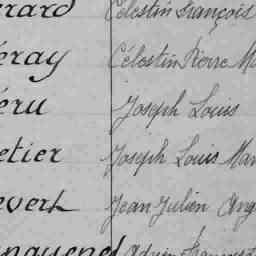 erard Célestin François
eray Célestin Pierre M
éru Joseph Louis
etier Joseph Louis Mar
evert Jean Julien Ang
nguenel Adrien François